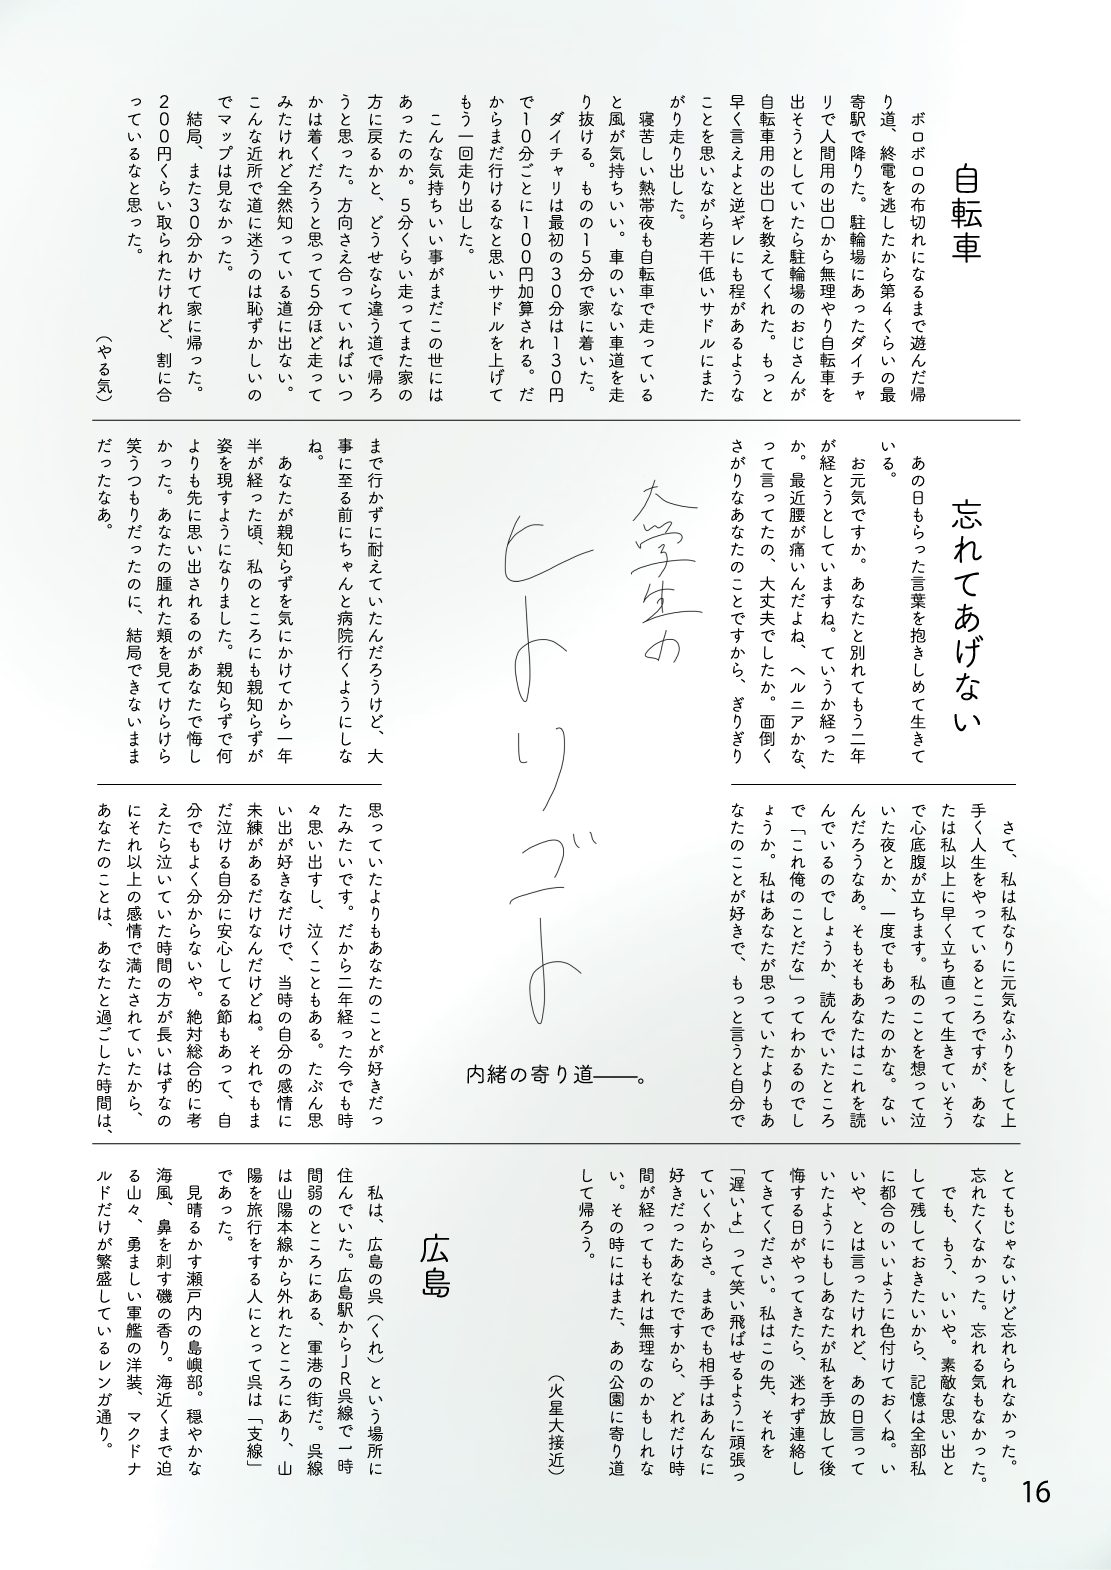 自転車
ボロボロの布切れになるまで遊んだ帰
り道、終電を逃したから第4くらいの最
寄駅で降りた。駐輪場にあったダイチャ
リで人間用の出口から無理やり自転車を
出そうとしていたら駐輪場のおじさんが
自転車用の出口を教えてくれた。もっと
早く言えよと逆ギレにも程があるような
ことを思いながら若干低いサドルにまた
がり走り出した。
寝苦しい熱帯夜も自転車で走っている
と風が気持ちいい。車のいない車道を走
り抜ける。ものの15分で家に着いた。
ダイチャリは最初の30分は130円
で10分ごとに100円加算される。だ
からまだ行けるなと思いサドルを上げて
もう一回走り出した。
こんな気持ちいい事がまだこの世には
あったのか。5分くらい走ってまた家の
方に戻るかと、どうせなら違う道で帰ろ
うと思った。方向さえ合っていればいつ
かは着くだろうと思って5分ほど走って
みたけれど全然知っている道に出ない。
こんな近所で道に迷うのは恥ずかしいの
でマップは見なかった。
結局、また30分かけて家に帰った。
200円くらい取られたけれど、割に合
っているなと思った。
（やる気）
忘れてあげない
あの日もらった言葉を抱きしめて生きて
いる。
お元気ですか。あなたと別れてもう二年
が経とうとしていますね。ていうか経った
か。最近腰が痛いんだよね、ヘルニアかな、
って言ってたの、大丈夫でしたか。面倒く
さがりなあなたのことですから、ぎりぎり
大学生の
ヒトリゴト
内緒の寄り道――。
まで行かずに耐えていたんだろうけど、大
事に至る前にちゃんと病院行くようにしな
ね。
あなたが親知らずを気にかけてから一年
半が経った頃、私のところにも親知らずが
姿を現すようになりました。親知らずで何
よりも先に思い出されるのがあなたで悔し
かった。あなたの腫れた頬を見てけらけら
笑うつもりだったのに、結局できないまま
だったなあ。
さて、私は私なりに元気なふりをして上
手く人生をやっているところですが、あな
たは私以上に早く立ち直って生きていそう
で心底腹が立ちます。私のことを想って泣
いた夜とか、一度でもあったのかな。ない
んだろうなあ。そもそもあなたはこれを読
んでいるのでしょうか、読んでいたところ
で「これ俺のことだな」ってわかるのでし
ょうか。私はあなたが思っていたよりもあ
なたのことが好きで、もっと言うと自分で
思っていたよりもあなたのことが好きだっ
たみたいです。だから二年経った今でも時
々思い出すし、泣くこともある。たぶん思
い出が好きなだけで、当時の自分の感情に
未練があるだけなんだけどね。それでもま
だ泣ける自分に安心してる節もあって、自
分でもよく分からないや。絶対総合的に考
えたら泣いていた時間の方が長いはずなの
にそれ以上の感情で満たされていたから、
あなたのことは、あなたと過ごした時間は、
とてもじゃないけど忘れられなかった。
忘れたくなかった。忘れる気もなかった。
でも、もう、いいや。素敵な思い出と
して残しておきたいから、記憶は全部私
に都合のいいように色付けておくね。い
いや、とは言ったけれど、あの日言って
いたようにもしあなたが私を手放して後
悔する日がやってきたら、迷わず連絡し
てきてください。私はこの先、それを
「遅いよ」って笑い飛ばせるように頑張っ
ていくからさ。まあでも相手はあんなに
好きだったあなたですから、どれだけ時
間が経ってもそれは無理なのかもしれな
い。その時にはまた、あの公園に寄り道
して帰ろう。
（火星大接近）
広島
私は、広島の呉（くれ）という場所に
住んでいた。広島駅からJR呉線で一時
間弱のところにある、軍港の街だ。呉線
は山陽本線から外れたところにあり、山
陽を旅行をする人にとって呉は「支線」
であった。
見晴るかす瀬戸内の島嶼部。穏やかな
海風、鼻を刺す磯の香り。海近くまで迫
る山々、勇ましい軍艦の洋装、マクドナ
ルドだけが繁盛しているレンガ通り。
16